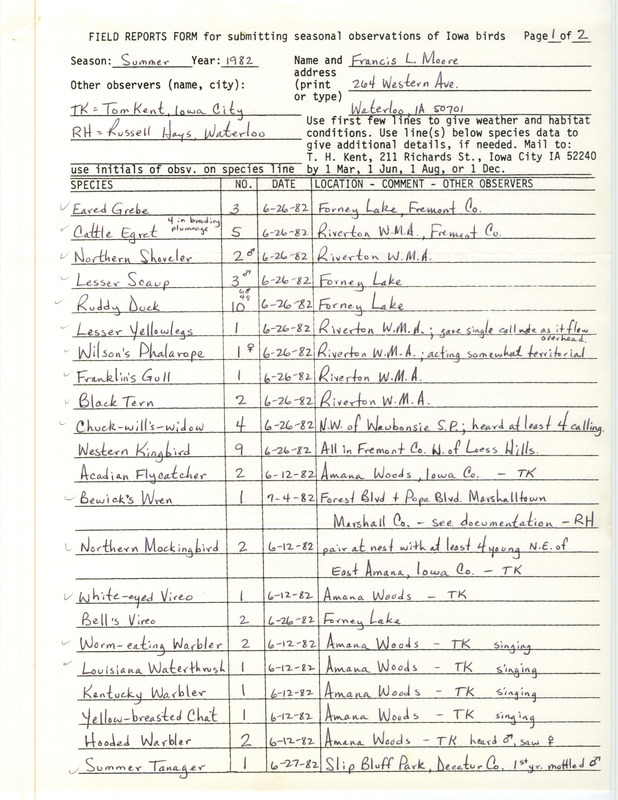 FIELD REPORTS FORM for submitting seasonal observations of Iowa birds Page 1 of 2
Season: Summer Year: 1982 Name and Francis L. Moore
address
Other observers (name, city): (print 264 Western Ave.
or type)
TK = Tom Kent, Iowa City Waterloo, IA 50701
RH = Russell Hays, Waterloo
Use first few lines to give weather and habitat
conditions. Use line(s) below species data to
give additional details, if needed. Mail to:
T. H. Kent, 211 Richards St., Iowa City IA 52240
use initials of obsv. on species line by 1 Mar, 1 Jun, 1 Aug, or 1 Dec.
SPECIES NO. DATE LOCATION - COMMENT - OTHER OBSERVERS
✓ Eared Grebe 3 6-26-82 Forney Lake, Fremont Co.
✓ Cattle Egret 4 in breeding plumage 5 6-26-82 Riverton W.M.A., Fremont Co.
✓ Northern Shoveler 2 ♂ 6-26-82 Riverton W.M.A.
✓ Lesser Scaup 3 ♂ 6-26-82 Forney Lake
✓ Ruddy Duck 10 6♂ 4♀ 6-26-82 Forney Lake
✓ Lesser Yellowlegs 1 6-26-82 Riverton W.M.A.; gave single call note as it flew overhead.
✓ Wilson's Phalarope 1 ♀ 6-26-82 Riverton W.M.A.; acting somewhat territorial
✓ Franklin's Gull 1 6-26-82 Riverton W.M.A.
✓ Black Tern 2 6-26-82 Riverton W.M.A.
✓ Chuck-will's-widow 4 6-26-82 N.W. of Waubonsie S.P.; heard at least 4 calling.
Western Kingbird 9 6-26-82 All in Fremont Co. W. of Loess Hills.
Acadian Flycatcher 2 6-12-82 Amana Woods, Iowa Co. - TK
✓ Bewick's Wren 1 7-4-82 Forest Blvd + Pope Blvd. Marshalltown
Marshall Co. - see documentation - RH
✓ Northern Mockingbird 2 6-12-82 pair at nest with at least 4 young N.E. of
East Amana, Iowa Co. - TK
✓ White-eyed Vireo 1 6-12-82 Amana Woods - TK
Bell's Vireo 2 6-26-82 Forney Lake
✓ Worm-eating Warbler 2 6-12-82 Amana Woods - TK singing
✓ Louisiana Waterthrush 1 6-12-82 Amana Woods - TK singing
Kentucky Warbler 1 6-12-82 Amana Woods - TK singing
Yellow-breasted Chat 1 6-12-82 Amana Woods - TK singing
Hooded Warbler 2 6-12-82 Amana Woods - TK heard ♂, saw ♀
✓ Summer Tanager 1 6-27-82 Slip Bluff Park, Decatur Co. 1st yr. mottled ♂